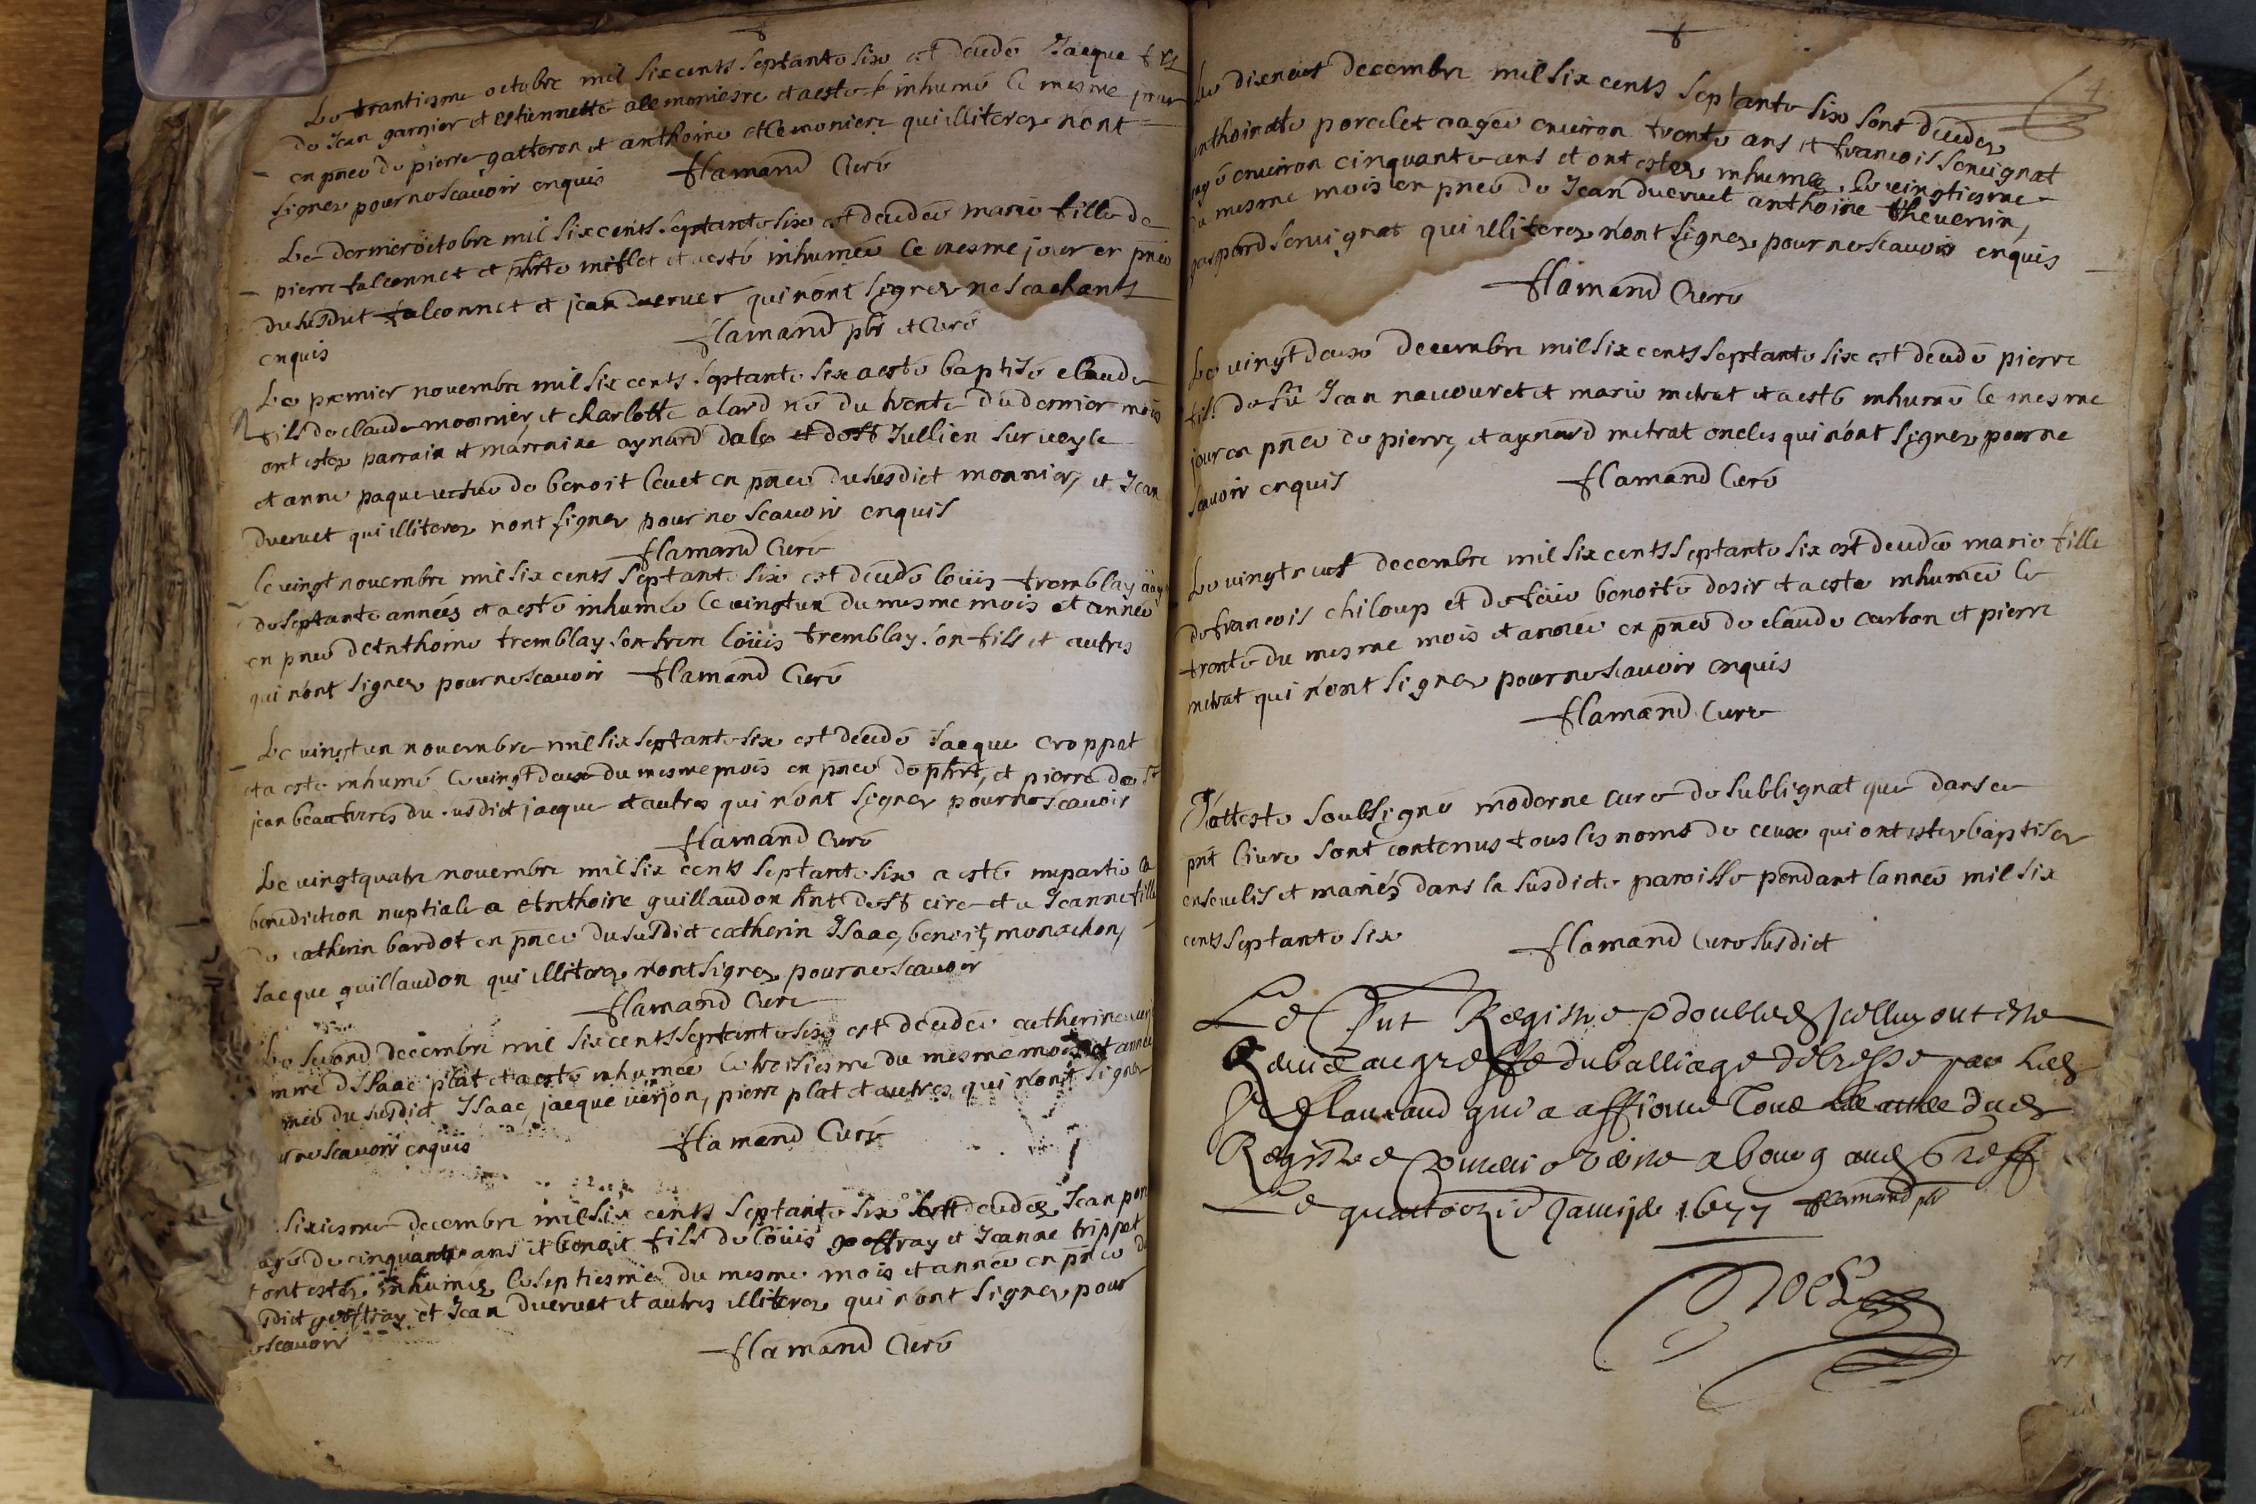 Le trantiesme octobre mil six cents septante six est decedé Jacque fils
de Jean garnier et estiennette alemoniere et a esté inhumé le mesme jour
en pnce de pierre gatteron et anthoine alemoniere qui illiterez n'ont
signez pour ne scavoir enquis flamand Curé
Le dernier octobre mil six cents septante six est decedée marie fille de
pierre falconnet et phte miflet et a esté inhumée le mesme jour en pnce
du susdict falconnet et jean duervet qui n'ont signez ne scachants
enquis flamand pbr et Curé
Le premier novembre mil six cents septante six a esté baptisé claude
fils de claude monnier et charlotte alard né du trente du dernier mois
ont estez parrain et marraine aynard dale et de St Jullien sur veyle
et anne paque vefve de benoit levet en pnce du susdict monnier et Jean
duervet qui illiterez n'ont signez pour ne scavoir enquis
flamand Curé
Le vingt novembre mil six cents septante six est decedé loüis tremblay
de septante années et a esté inhumé le vingt un du mesme mois et année
en pnce d'Anthoine tremblay son frere loüis tremblay son fils et autres
qui n'ont signez pour ne scavoir flamand Curé
Le vingt un novembre mil six septante six est decedé Jacque croppat
et a esté inhumé le vingt deux du mesme mois en pnce de phrt, et pierre de St
jean beaufreres du susdict jacque et autres qui n'ont signez pour ne scavoir
flamand Curé
Le vingt quatre novembre mil six cents septante six a esté impartie la
benediction nuptiale a Anthoine guillaudon hnt de St cire et a Jeanne fille
de catherin bardot en pnce du susdict catherin Isaac, benoit, monachon,
Jacque guillaudon qui illiterez n'ont signez pour ne scavoir
flamand Curé
Le second decembre mil six cents septante six est decedée catherine
d'Isaac plat et a esté inhumée le troisiesme du mesme mois et année
du susdict Isaac, jacque verjon, pierre plat et autres, qui n'ont signez
ne scavoir enquis flamand Curé
sixiesme decembre mil six cents septante six sont decedez Jean pon
agé de cinquante ans et benoit fils de loüis goffray et Jeanne trippet
ont estez inhumez le septiesme du mesme mois et année en pnce du
dict goffray et Jean duervet et autres illiterez qui n'ont signez pour
scavoir
flamand Curé
Le dixneuf decembre mil six cents septante six sont decedez
anthoinete porcelet aagée environ trente ans et francois servignat
agé environ cinquante ans et ont estez inhumez le vingtiesme
du mesme mois en pnce de Jean duervet anthoine thevenin,
gaspard servignat qui illiterez n'ont signez pour ne scavoir enquis
flamand Curé
Le vingt deux decembre mil six cents septante six est decedé pierre
fils de fû Jean navouret et marie metrat et a esté inhumé le mesme
jour en pnce de pierre, et aynard metrat oncles qui n'ont signez pour ne
scavoir enquis flamand Curé
Le vingt neuf decembre mil six cents septante six est decedée marie fille
de francois chiloup et de feüe benoite dosir et a esté inhumée le
trente du mesme mois et année en pnce de claude carbon et pierre
metrat qui n'ont signez pour ne scavoir enquis
flamand Curé
J'atteste soubsigné moderne curé de sublignat que dans ce
pnt livre sont contenus tous les noms de ceux qui ont estez baptisez
ensevelis et mariéz dans la susdicte paroisse pendant l'année mil six
cents septante six flamand Curé susdict
Le Pnt Registre double
au greffe du balliage de bresse par led
Sr flamand qui a affirmé
Registre a bourg aud Greff
Le quatorzie Janvier 1677 flamand pbr